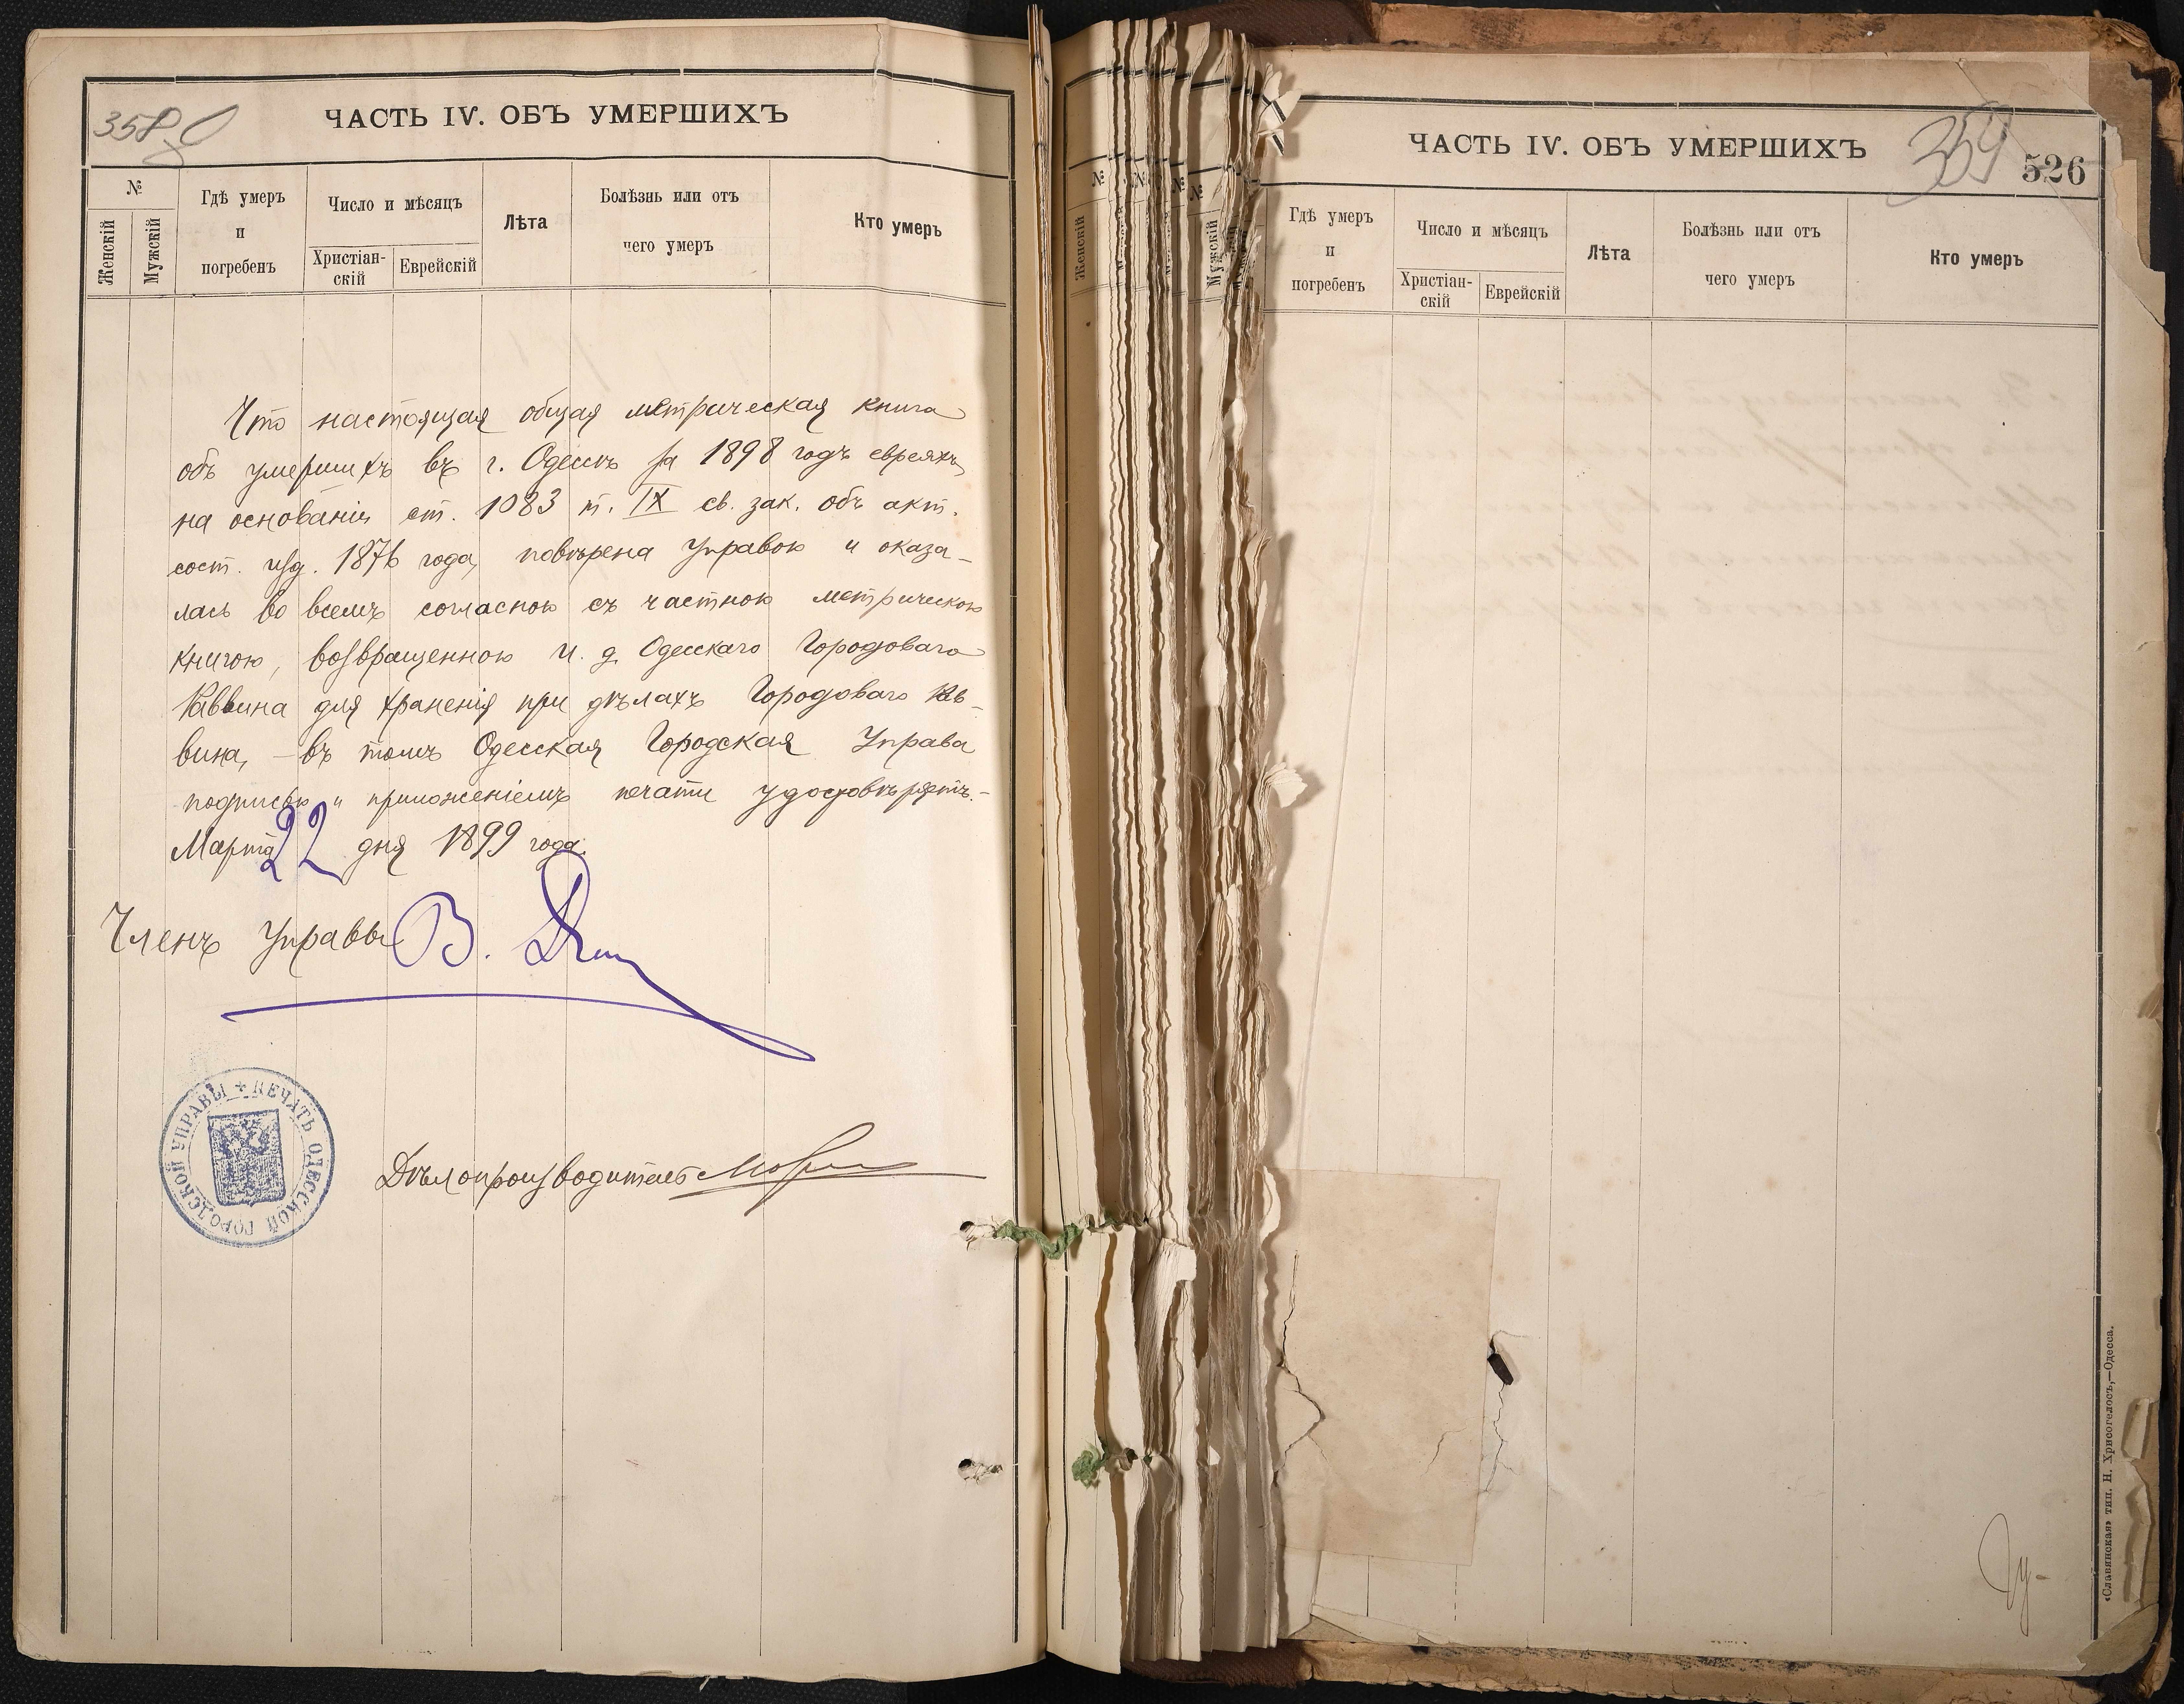 358
ЧАСТЬ IV. ОБЪ УМЕРШИХЪ
№
Женскій
Мужскій
Гдѣ умеръ
и
погребенъ
Число и мѣсяцъ
Христіан-
скій
Еврейскій
Лѣта
Болѣзнь или отъ
чего умеръ
Кто умеръ
Что настоящая общая метрическая книга
объ умершихъ въ г. Одессѣ за 1898 годъ евреяхъ,
на основаніи ст. 1083 т. IX св. зак. объ акт.
сост. изд. 1876 года, повѣрена Управою и оказа-
лась во всемъ согласною съ частною метрическою
книгою, возвращенною И. д. Одесскаго Городоваго
Раввина для храненія при дѣлахъ Городоваго Рав-
вина, - въ томъ Одесская Городская Управа
подписью и приложеніемъ печати удостовѣряетъ.-
Марта 22 дня 1899 года.
Членъ Управы В.
ПЕЧАТЬ ОДЕССКОЙ ГОРОДСКОЙ УПРАВЫ
Дѣлопроизводитель
№
Женскій
№
№
№
Мужскій
ЧАСТЬ IV. ОБЪ УМЕРШИХЪ
359
526
Гдѣ умеръ
и
погребенъ
Число и мѣсяцъ
Христіан-
скій
Еврейскій
Лѣта
Болѣзнь или отъ
чего умеръ
Кто умеръ
«Славянская» тип. Н. Хрисогелосъ,—Одесса.